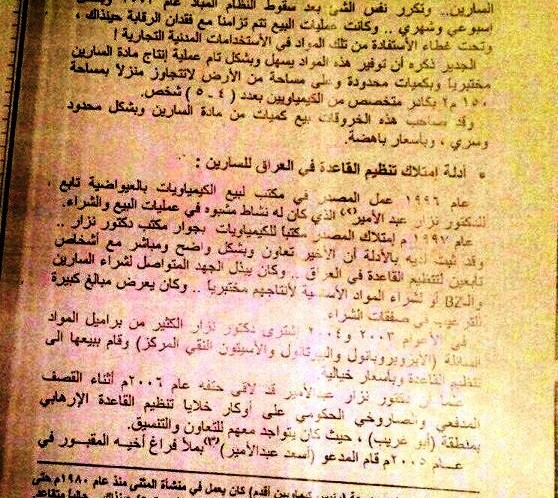 السارين.. وتكرر نفس الشئ بعد سقوط النظام المباد عام
إسبوعي وشهري .. وكانت عمليات البيع تتم تزامناً مع فقدان الرقابة حينذاك ،
وتحت غطاء الأستفادة من تلك المواد في الأستخدامات المدنية التجارية !
الجدير ذكره أن توفير هذه المواد يسهل وبشكل تام عملية إنتاج مادة السارين
مختبرياً وبكميات محدودة وعلى مساحة من الأرض لاتتجاوز منزلاً بمساحة
١٥٠ م٢ بكادر متخصص من الكيمياويين بعدد ( ٤ - ٥ ) شخص.
وقد صاحب هذه الخروقات بيع كميات من مادة السارين وبشكل محدود
وسري ، وبأسعار باهضة.
أدلة إمتلاك تنظيم القاعدة في العراق للسارين :
عام ١٩٩٦ عمل المصدر في مكتب لبيع الكيمياويات بالعيواضية تابع
للدكتور نزار عبد الأمير(٢) الذي كان له نشاط مشبوه في عمليات البيع والشراء.
عام ١٩٩٧ م إمتلاك المصدر مكتباً للكيمياويات بجوار مكتب دكتور نزار ..
وقد ثبت لديه بالأدلة أن الأخير تعاون وبشكل واضح ومباشر مع أشخاص
تابعين لتنظيم القاعدة في العراق .. وكان يبذل الجهد المتواصل لشراء السارين
والـBZ أو لشراء المواد الأساسية لأنتاجهم مختبرياً .. وكان يعرض مبالغ كبيرة
في صفقات الشراء.
في الأعوام ٢٠٠٣ و٢٠٠٤ إشترى دكتور نزار الكثير من براميل المواد
السائلة (الايزوبروبانول والأسيتون النقي المركز) وقام ببيعها الى
تنظيم القاعدة وبأسعار خيالية
دكتور نزار عبدالأمير قد لاقى حتفه عام ٢٠٠٦م أثناء القصف
المدفعي والصاروخي الحكومي على أوكار خلايا تنظيم القاعدة الإرهابي
بمنطقة (أبو غريب) ، حيث كان يتواجد معهم للتعاون والتنسيق.
عام ٢٠٠٥م قام المدعو (أسعد عبدالأمير)(٣) بملأ فراغ أخيه المقبور في
كان يعمل في منشأة المثنى منذ عام ١٩٨٠م حتى